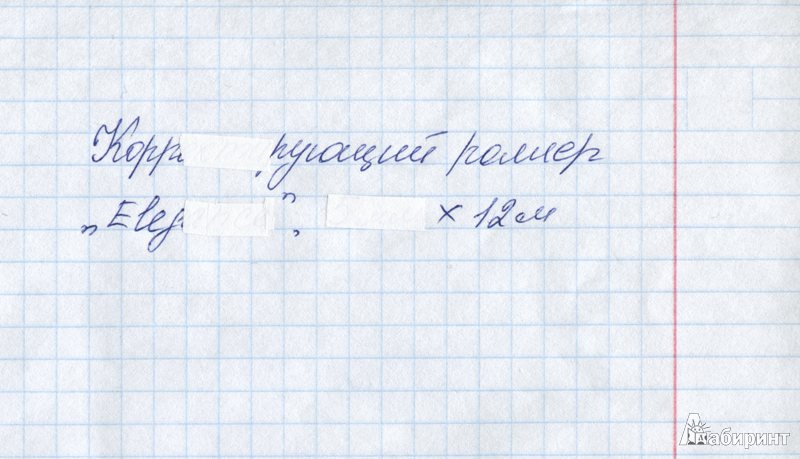 Корр рующий роллер
„Eleg ", × 12м
Лабиринт